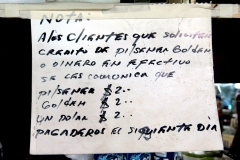 NOTA:
A LOS CLIENTES QUE SOLICITEN
CREDITO DE PILSENER GOLDEN
O DINERO EN EFECTIVO
SE LES COMUNICA QUE
PILSENER $ 2..
GOLDEN $ 2..
UN DOLAR $ 2..
PAGADEROS EL SIGUIENTE DIA